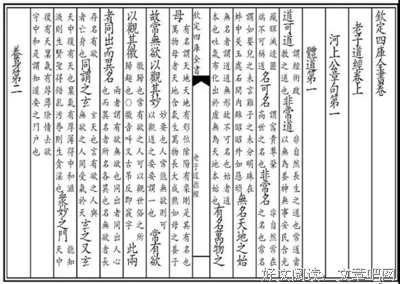 欽定四庫全書卷
老子道經卷上
河上公章句第一
體道第一
道可道 謂經術政教之道也 非常道 非自然長生之道也常道當以無為養神無事安民含光
藏暉滅迹匿端不可稱道 名可名 謂富貴尊榮高世之名也 非常名 非自然常在之名也常名
當如嬰兒之未言雞子之未分明珠在蚌中美玉處石間內雖昭昭外如愚頑 無名天地之始
無名者謂道道無形故不可名也始者道本也吐氣布化出於虛無為天地本始也 有名萬物之
欽定四庫全書 老子道德經
母 有名謂天地天地有形位陰陽有柔剛是其有名也萬物母者天地含氣生萬物長大成熟如母之養子
故常無欲以觀其妙 妙要也人常能無欲則可以觀道之要要謂一也 常有欲
以觀其徼 徼歸也常有欲之人可以觀世俗之所歸趣也 此兩
者同出而異名 兩者謂有欲無欲也同出者同出人心也而異名者所名各異也名無欲者長
存名有欲者亡身也 同謂之玄 玄天也言有欲之人與無欲之人同受氣於天 玄之又玄
天中復有天也稟氣有厚薄得中和滋液則生賢聖得錯亂污辱則生貪淫也 衆妙之門 能知天中
復有天稟氣有厚薄除情去欲守中和是謂知道要之門户也
養身第二
好文閱讀：文章吧网